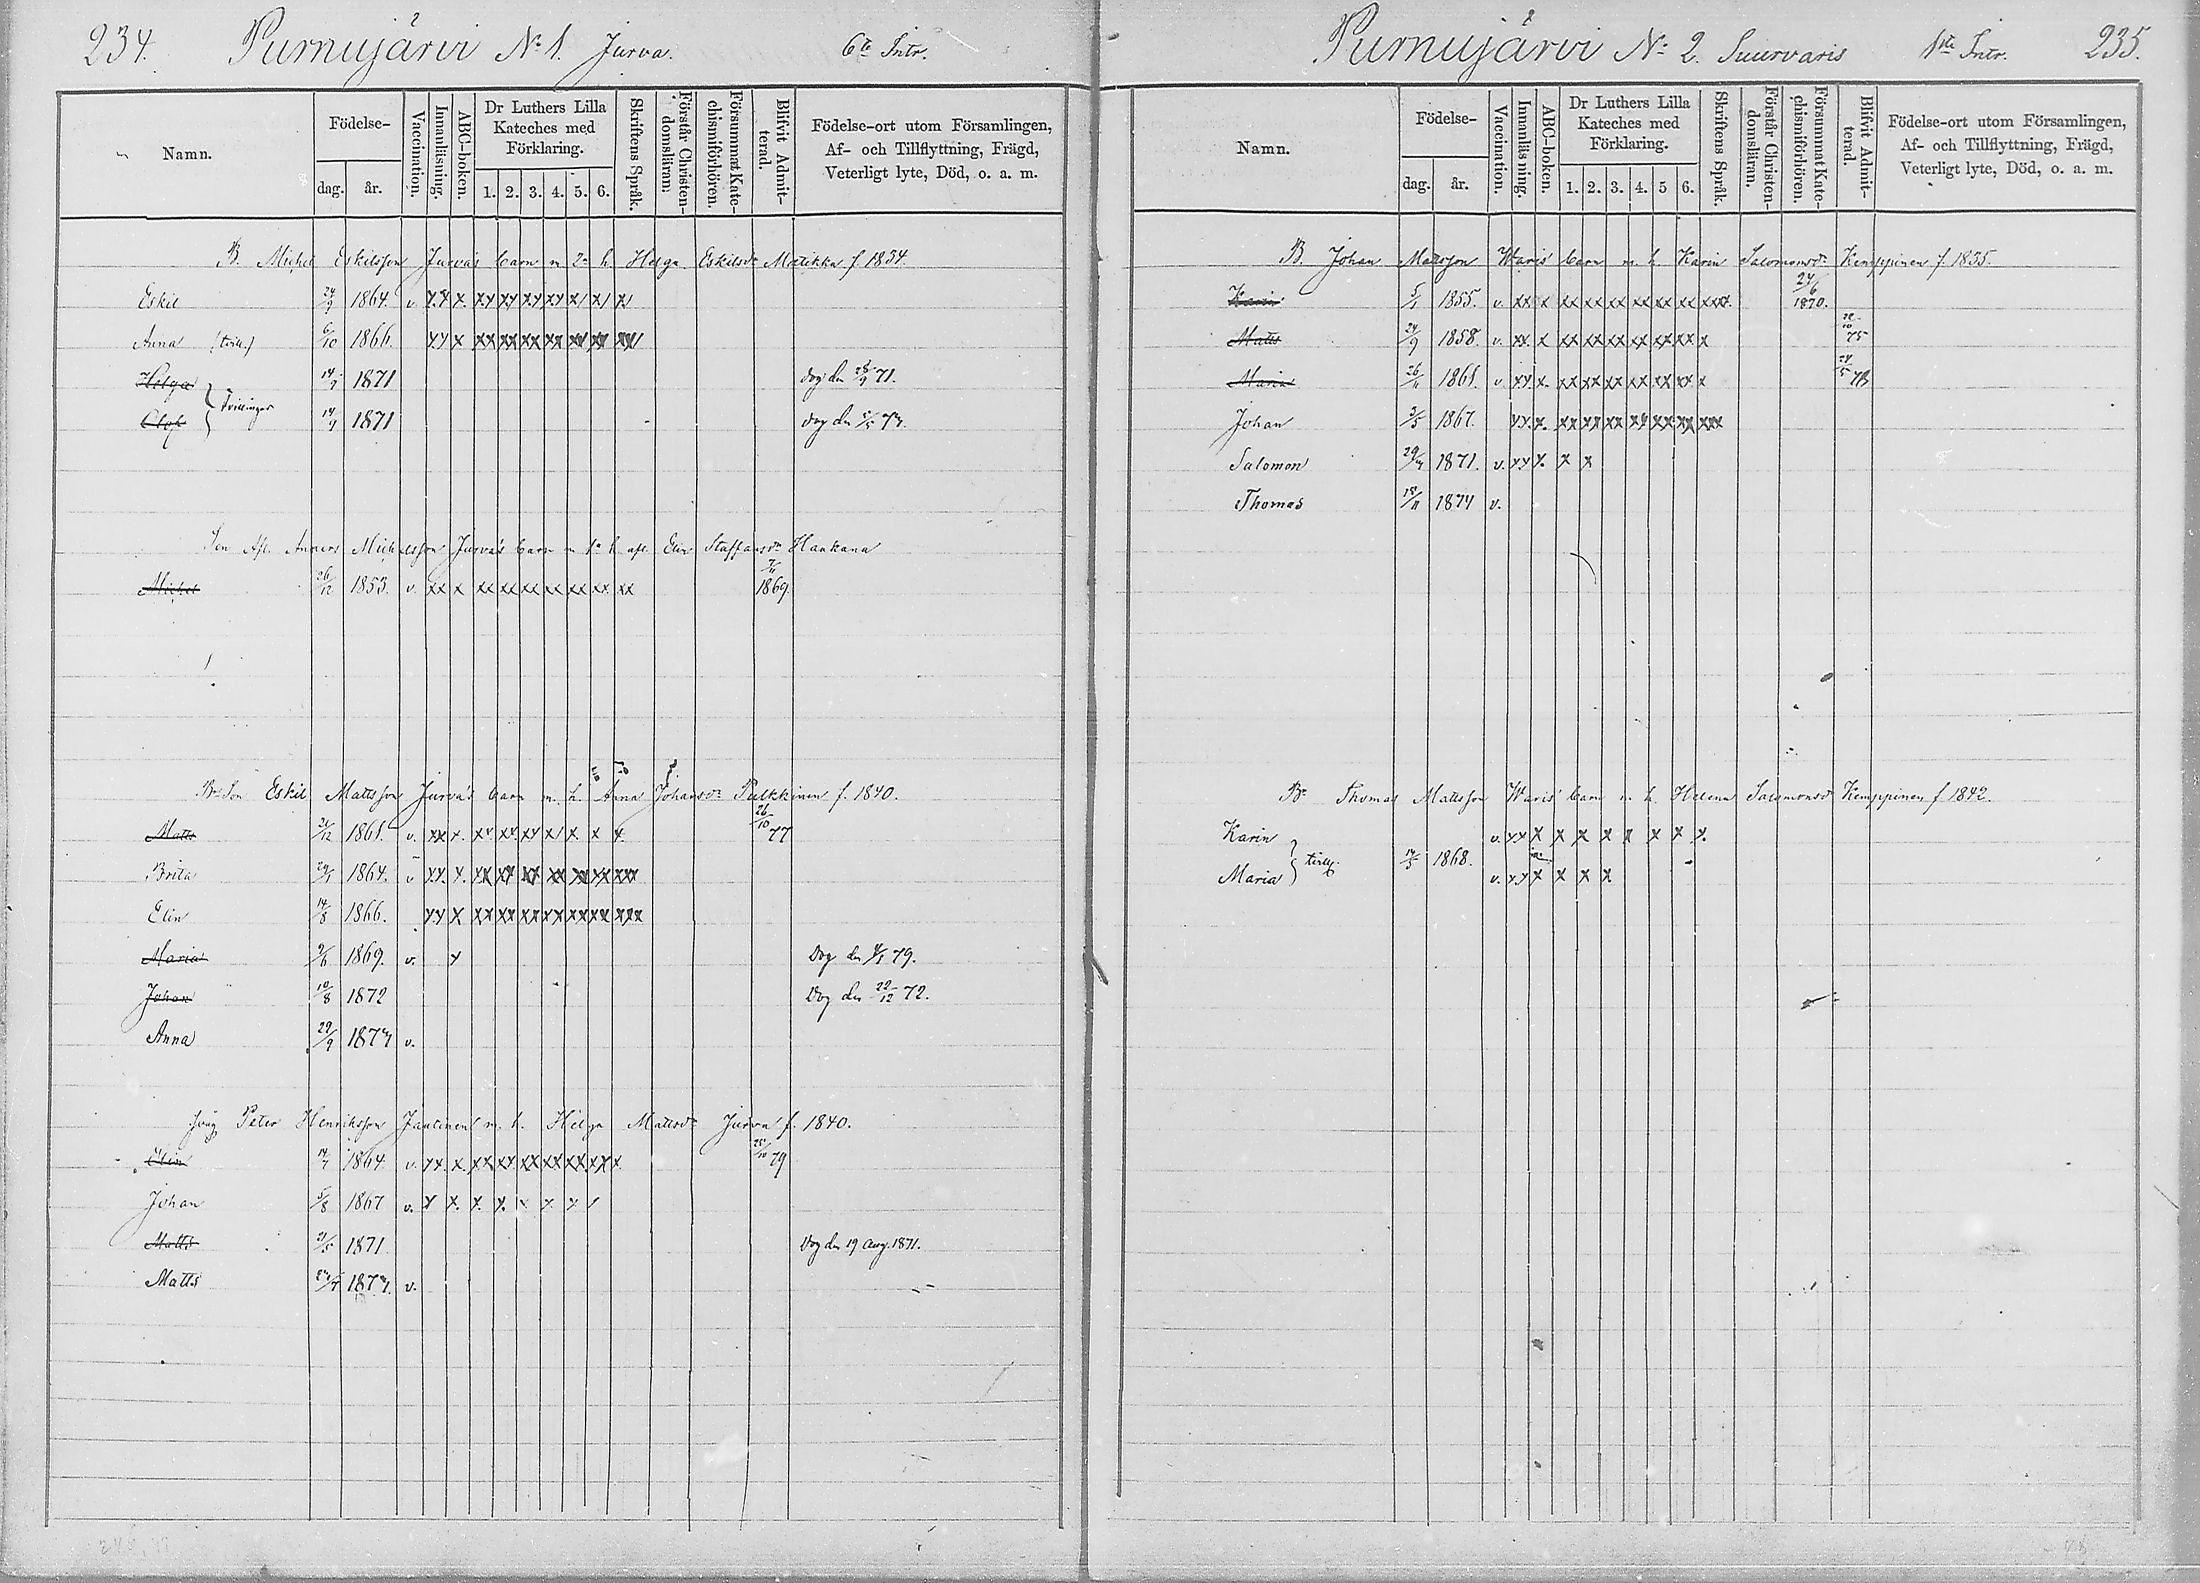 234. Purnujärvi No 1. Jurva. 6te Intr.
Namn.
Födelse-
dag. år.
Vaccination.
Innanläsning.
ABC-boken.
Dr Luthers Lilla
Kateches med
Förklaring.
1. 2. 3. 4. 5. 6.
Skriftens Språk.
Förstår Christen-
domsläran.
Försummat Kate-
chismiförhören.
Blifvit Admit-
terad.
Födelse-ort utom Församlingen,
Af- och Tillflyttning, Frägd,
Veterligt lyte, Död, o. a. m.
B. Michel Eskilsson Jurva's barn m. 2a h. Helga Eskilsdr Matikka f. 1834.
Eskil 24/9 1864. v. xx x. xx xx xx xx x/ x/ x/
Anna (tvill.) 6/10 1866. xx x xx xx xx xx xx xx xx/
Helga 14/9 1871 Dog den 28/9 71.
Olof } Tvillingar 14/9 1871
Son Afl. Anders Michelsson Jurva's barn m. 1a h. afl. Elin Staffansdr Haukana
Michel 26/12 1853. v. xx x xx xx xx xx xx xx xx 1869.
Br Son Eskil Mattsson Jurva's barn m. h. Anna Johansdr Pulkkinen f. 1840.
Matts 21/12 1861. v. xx x. xx xx xx x/ x x x 26/10 77
Brita 1864. v xx. x. xx xx xx xx xx xx xxx
Elin 14/8 1866. xx x xx xx xx xx xx xx xxx
Maria 9/6 1869. v. x Dog den 79.
Johan 10/8 1872 Dog den 22/12 72.
Anna 29/9 1874 v.
Peter Henriksson Jantinen m. h. Helga Mattsdr Jurva f. 1840.
Elin 1864 v. xx x. xx xx xx xx xx xx x 25/10 79
Johan 5/8 1867 v. x x. x. x. x x x /
Matts 21/5 1871 Dog den 19 Aug. 1871.
Matts 1874. v.
Purnujärvi No 2. Suurvaris 1sta Intr. 235.
Namn.
Födelse-
dag. år.
Vaccination.
Innanläsning.
ABC-boken.
Dr Luthers Lilla
Kateches med
Förklaring.
1. 2. 3. 4. 5 6.
Skriftens Språk.
Förstår Christen-
domsläran.
Försummat Kate-
chismiförhören.
Blifvit Admit-
terad.
Födelse-ort utom Församlingen,
Af- och Tillflyttning, Frägd,
Veterligt lyte, Död, o. a. m.
B. Johan Mattsson Waris' barn m. h. Karin Salomonsdr Kemppinen f. 1835.
Karin 5/1 1855. v. xx x xx xx xx xx xx xx xxx 24/6 1870.
Matts 24/9 1858. v. xx x xx xx xx xx xx xx x 22/10 75
Maria 26/11 1861. v. xx x. xx xx xx xx xx xx x 24/5 78
Johan 3/5 1867. xx. x. xx xx xx xx xx xx xxx
Salomon 1871. v. xx x. x x
Thomas 18/11 1874 v.
Br Thomas Mattsson Waris' barn m. h. Helena Salomonsdr Kemppinen f 1842.
Karin v. xx x x x x x x x x.
} tvill. 14/3 1868.
Maria v. xx x x x x